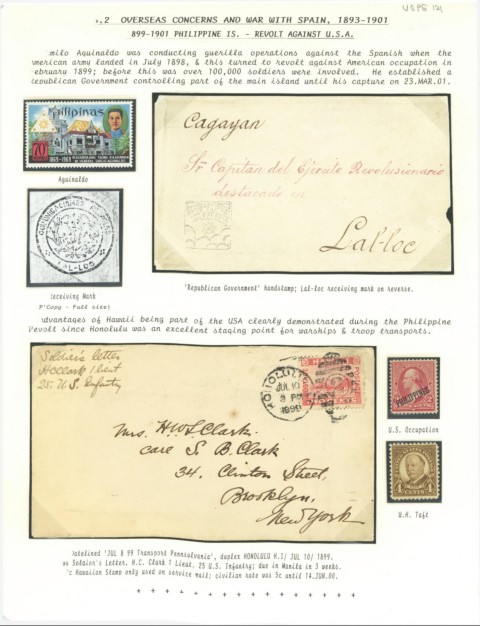 USPS 121
.2 OVERSEAS CONCERNS AND WAR WITH SPAIN, 1893-1901
899-1901 PHILIPPINE IS. - REVOLT AGAINST U.S.A.
milo Aguinaldo was conducting guerilla operations against the Spanish when the
merican army landed in July 1898, & this turned to revolt against American occupation in
ebruary 1899; before this was over 100,000 soldiers were involved. He established a
epublican Government controlling part of the main island until his capture on 23.MAR.01.
Pilipinas
70
1869-1969
Aguinaldo
Cagayan
Sr Capitan del Ejército Revolusionario
destacado en
Lal-loc
LAL-LOC
eceiving Mark
P'Copy - Full size)
'Republican Government' handstamp; Lal-loc receiving mark on reverse.
dvantages of Hawaii being part of the USA clearly demonstrated during the Philippine
evolt since Honolulu was an excellent staging point for warships & troop transports.
Soldier's letter
HC Clark 1 Lieut
25 U.S. Infantry
HONOLULU
JUL 10
1899
CENTS
Mrs. H.W.S. Clark.
care S. B. Clark
34. Clinton Street,
Brooklyn,
New York
PHILIPPINES
U.S. Occupation
4
W.H. Taft
atelined 'JUL 8 99 Transport Pennsylvania', duplex HONOLULU H.I/ JUL 10/ 1899.
Soldier's Letter, H.C. Clark 1 Lieut, 25 U.S. Infantry; due in Manila in 3 weeks.
c Hawaiian Stamp only used on service mail; civilian rate was 5c until 14.JUN.00.
+ + + + + + + + + + + + + + + +